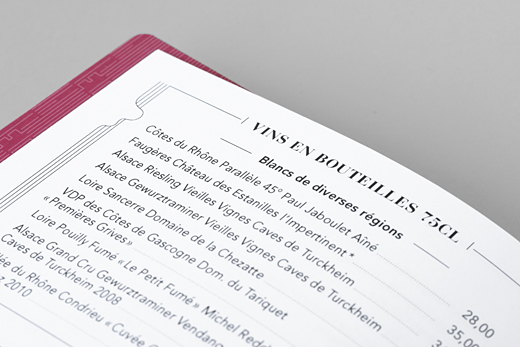 VINS EN BOUTEILLES 75CL
Blancs de diverses régions
Côtes du Rhône Parallèle 45° Paul Jaboulet Aîné
Faugères Château des Estanilles l'Impertinent *
Alsace Riesling Vieilles Vignes Caves de Turckheim
Alsace Gewurztraminer Vieilles Vignes Caves de Turckheim
Loire Sancerre Domaine de la Chezatte
VDP des Côtes de Gascogne Dom. du Tariquet
« Premières Grives »
Loire Pouilly Fumé « Le Petit Fumé » Michel
Alsace Grand Cru Gewurztraminer
Caves de Turckheim 2008
du Rhône Condrieu «
2010
28,00
35,00